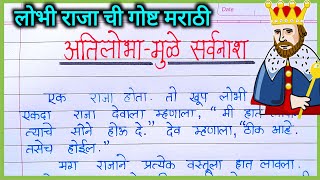 लोभी राजा ची गोष्ट मराठी
अतिलोभा-मुळे सर्वनाश
एक राजा होता. तो खूप लोभी
एकदा राजा देवाला म्हणाला, "मी हात
त्याचे सोने होऊ दे." देव म्हणाला, "ठीक आहे.
तसेच होईल."
मग राजाने प्रत्येक वस्तूला हात लावला.